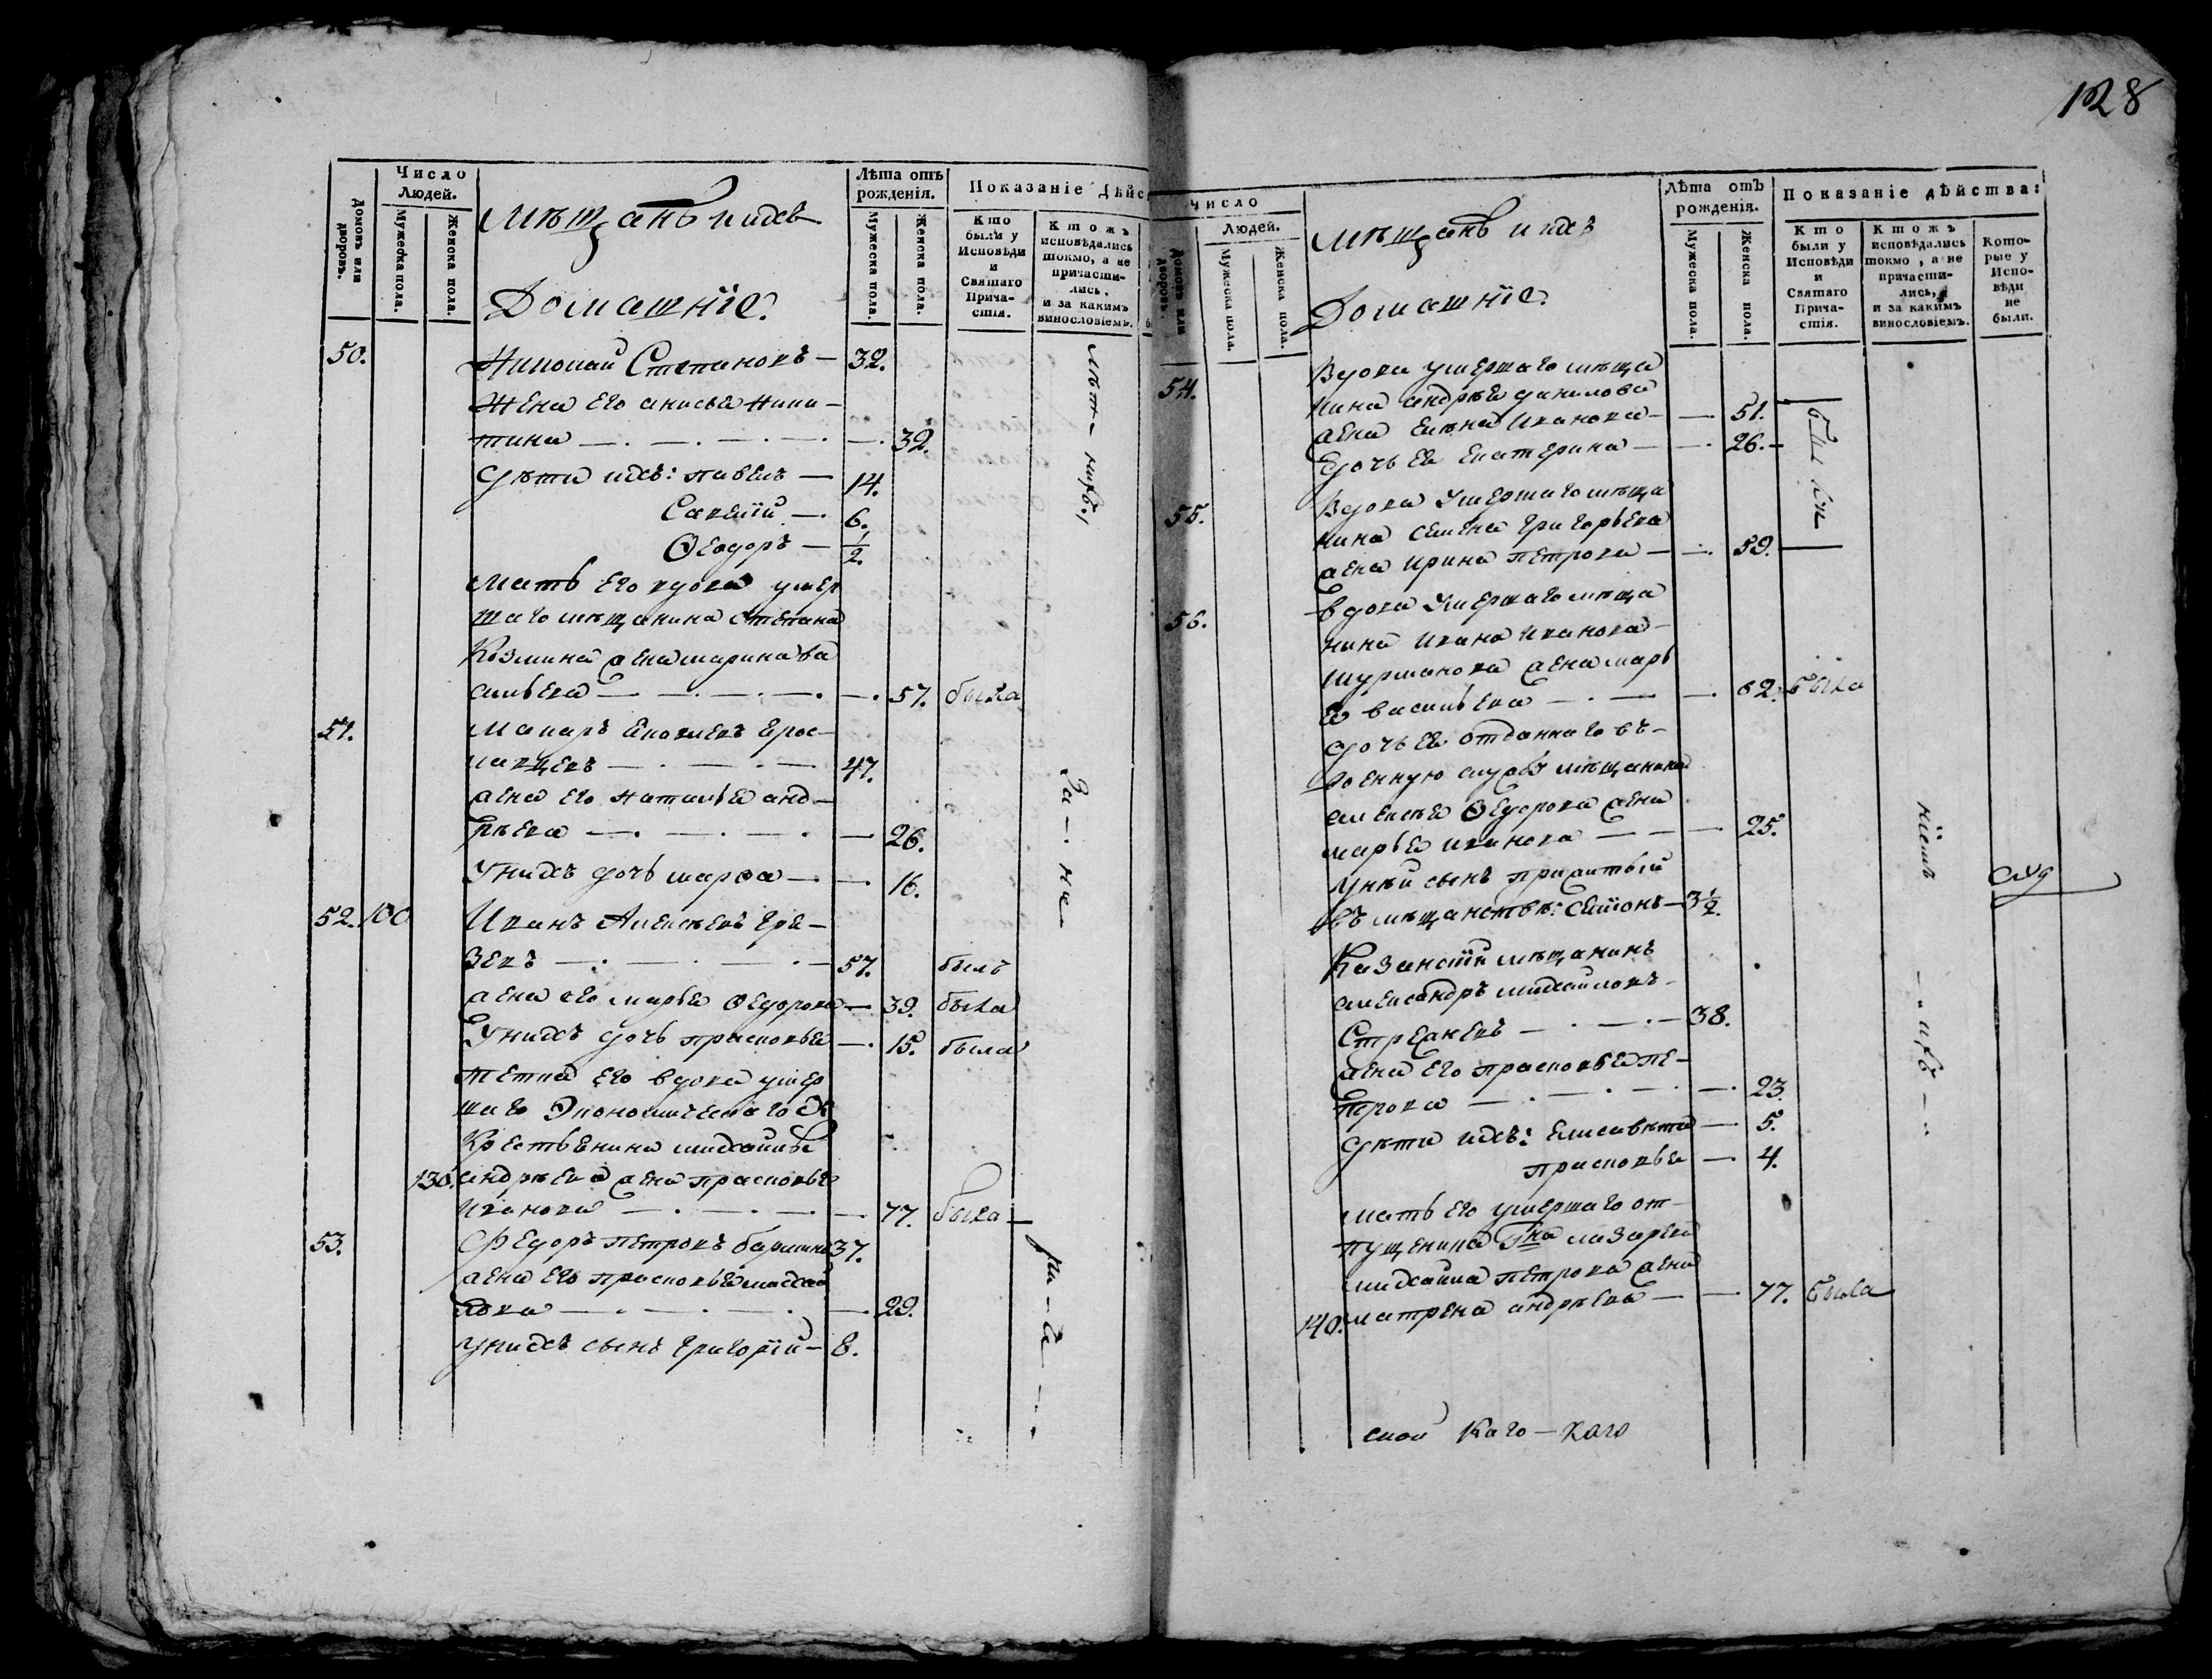 128
Домовъ или дворовъ.
Число
Людей.
Мужеска пола.
Женска пола.
Мѣщанъ и ихъ
Домашніе.
Лѣта отъ
рожденія.
Мужеска пола.
Женска пола.
Показаніе дѣйс
Кто
были у
Исповѣди
и
Святаго
Прича-
стія.
Ктожъ
исповѣдались
токмо, а не
причасти-
лись,
и за какимъ
винословіемъ.
50. Николай Степановъ — 32.
Жена его анисья Ники-
тина — 32.
Дѣти ихъ: павелъ — 14.
Савелій — 6.
Ѳеодоръ — 1/2.
Мать его вдова умер
шаго мѣщанина Степана
Козмина жена марина ва
сильева — 57. была
51. Макаръ Яковлевъ Ярос-
лавцевъ — 47.
жена его наталья анд-
рѣева — 26.
Унихъ дочь марѳа — 16.
52. 100 Иванъ Алексѣевъ Гре-
зевъ — 57. былъ
жена его марья Ѳедорова — 39. была
Унихъ дочь прасковья — 15. была
тетка его вдова умер
шаго Экономическаго
Крестьянина михайлы
130. андрѣева жена прасковья
Иванова — 77. была
53. Федоръ петровъ 37.
жена его прасковья михай
лова — 29.
унихъ сынъ григорій — 8.
Домовъ или дворовъ.
Число
Людей.
Мужеска пола.
Женска пола.
Мѣщанъ и ихъ
Домашніе.
Лѣта отъ
рожденія.
Мужеска пола.
Женска пола.
Показаніе дѣйства:
Кто
были у
Исповѣди
и
Святаго
Прича-
стія.
Ктожъ
исповѣдались
токмо, а не
причасти-
лись,
и за какимъ
винословіемъ.
Кото-
рые у
Испо-
вѣди
не
были.
54. Вдова умершаго мѣща
нина андрѣя данилова
жена Елена Иванова — 51.
дочь ея Екатерина — 26.
55. Вдова Умершаго мѣща
нина семена григорьева
жена ирина петрова — 59.
56. вдова Умершаго мѣща
нина Ивана Иванова
жена марь
я васильева — 62. была
дочь ея отданнаго въ-
военную службу мѣщанина
алексѣя Ѳедорова жена
марья иванова — 25.
унѣй сынъ прижитый
въ мѣщанствѣ: семіонъ — 3 1/2.
Казанскій мѣщанинъ
александръ михайловъ
Стрежневъ — 38.
жена его прасковья пе-
трова — 23.
дѣти ихъ: Елисавета — 5.
прасковья — 4.
мать его умершаго от-
пущенина Гна лазарева
михаила петрова жена
140. матрена андрѣева — 77. была